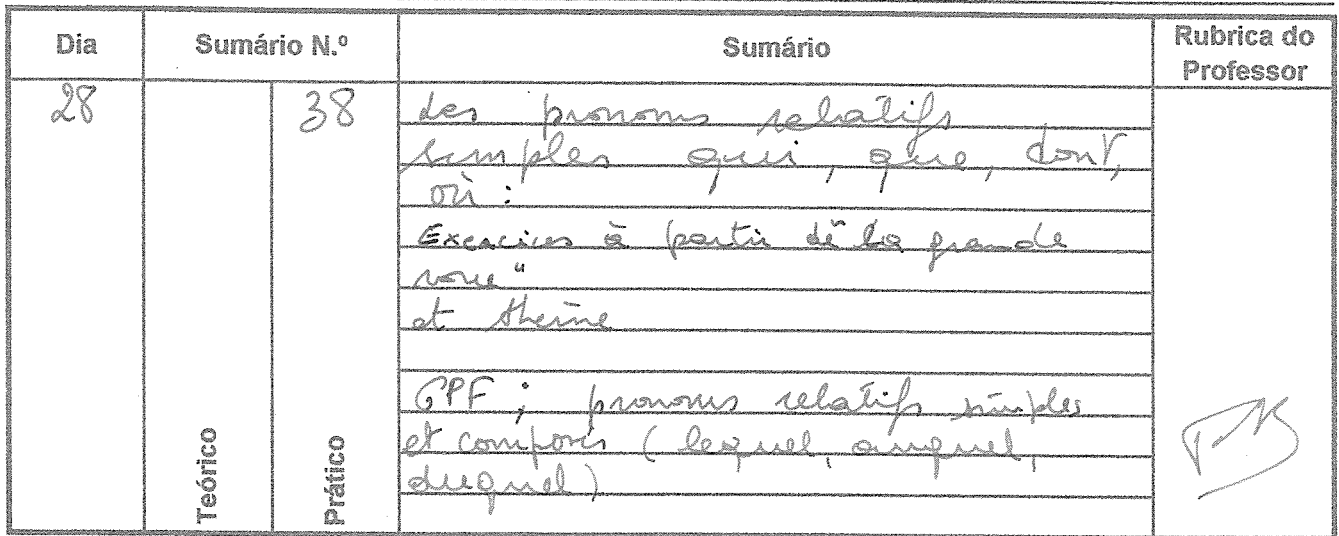 Dia Sumário N.º Sumário Rubrica do Professor
28 38 Les pronoms relatifs
simples qui, que, dont,
où :
Exercices à partir de "la grande
roue"
et thème
GPF ; pronoms relatifs simples
et composés (lequel, auquel,
duquel)
Teórico
Prático